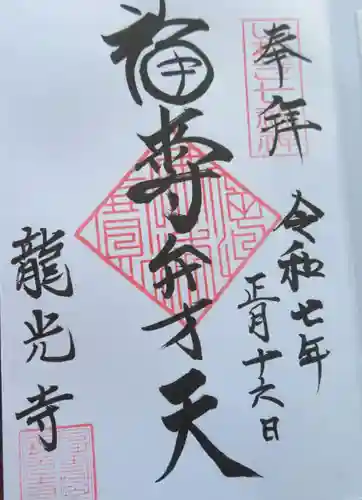 奉拝
令和七年
正月十六日
福寿弁才天
龍光寺